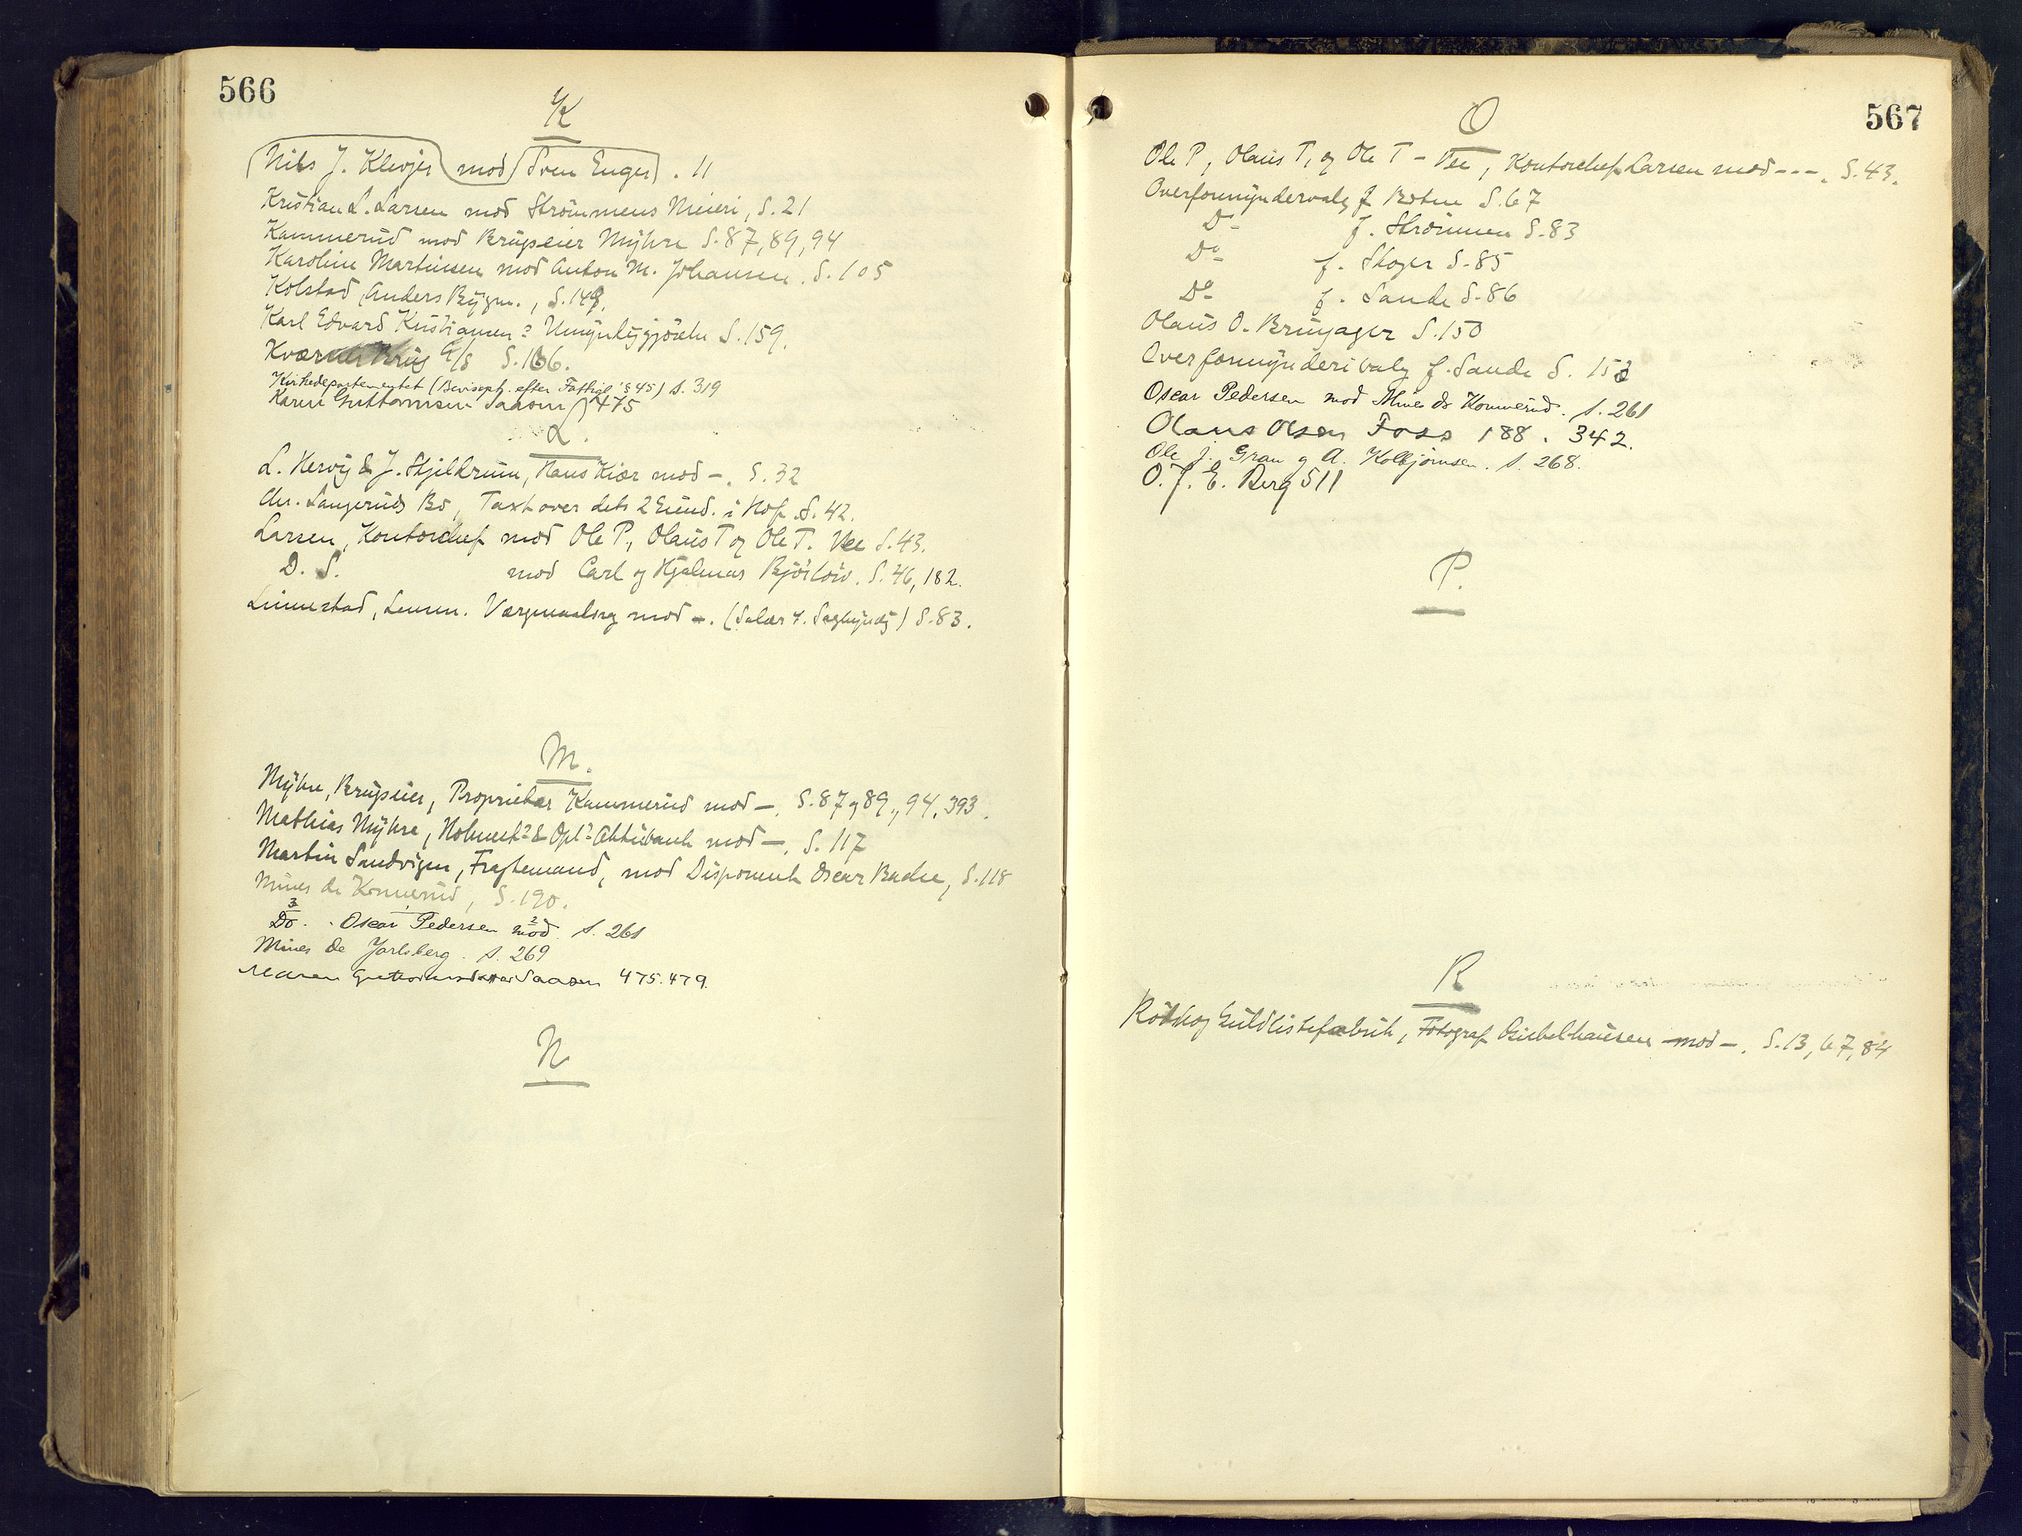 566
K
Nils J. Klevjer mod Sven Enger. 11
Kristian L. Larsen mod Strömmens Meieri, S. 21
Kammerud mod Brugseier Myhre S. 87, 89, 94
Karoline Martinsen mod Anton M. Johansen. S. 105
Kolstad, Anders Bygm., S. 149.
Karl Edvard Kristiansen: Umyndiggjörelse S. 159.
Kværnes Brug A/S S. 166.
Kirkedepartementet (Bevisopt. efter Fattigl. § 45) s. 319
Karen Guttormsen Saasen 475
L.
L. Hervig & J. Skjelkrum, Hans Kiær mod -. S. 32
Chr. Langeruds Bo, Taxt over dets 2 Eiend. i Hof. S. 42.
Larsen, Kontorchef mod Ole P, Olaus T og Ole T. Vee S. 43.
D. S. mod Carl og Hjalmar Björlow. S. 46, 182.
Linnestad, Lensm. Værgemaalsreg mod -. (Salær f. ) S. 83.
M.
Myhre, Brugseier, Proprietær Kammerud mod -. S. 87 og 89, 94, 393.
Mathias Myhre, Holmest. & Opl. Aktiebank mod -. S. 117
Martin Sandvigen, Fragtemand, mod Disponent Oscar Bache, S. 118
Mines de Konnerud, S. 190.
Do. Oscar Pedersen mod. s. 261
Mines de Jarlsberg. s. 269
Maren Guttormsdatter Saasen 475. 479.
N
567
O
Ole P, Olaus T, og Ole T - Vee, Kontorchef Larsen mod ---. S. 43.
Overformyndervalg f. Botne S. 67
Do f. Strömmen S. 83
Do f. Skoger S. 85
Do f. Sande S. 86
Olaus O. Bruserager S. 150
Overformynderivalg f. Sande S. 153
Oscar Pedersen mod Mines de Konnerud. s. 261
Olaus Olsen Foss 188. 342.
Ole J. Gran og A. Kolbjørnsen. s. 268.
O. J. E. Berg 511
P.
R
Rödskog Guldlistefabrik, Fotograf Giebelhausen mod -. S. 13, 67, 84